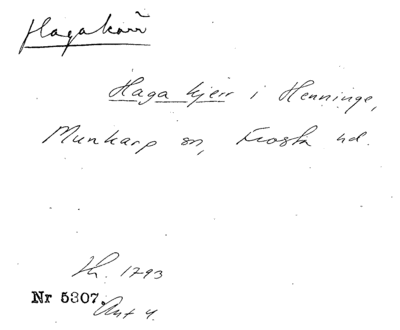 Hagakärr
Haga kjerr i Henninge,
Munkarp sn, Frosta hd.
Lh. 1793
Nr 5307. Ant 4.